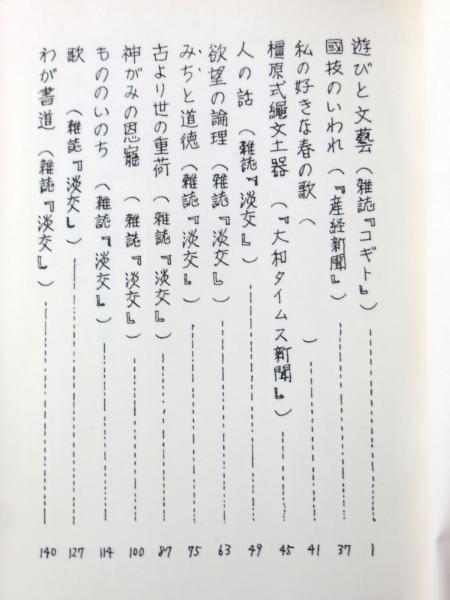 遊びと文藝（雑誌『コギト』）1
國枝のいわれ（『産経新聞』）37
私の好きな春の歌（　　　）41
橿原式縄文土器（『大和タイムス新聞』）45
人の話（雑誌『淡交』）49
欲望の論理（雑誌『淡交』）63
みちと道徳（雑誌『淡交』）75
古より世の重荷（雑誌『淡交』）87
神がみの恩寵（雑誌『淡交』）100
もののいのち（雑誌『淡交』）114
歌（雑誌『淡交』）127
わが書道（雑誌『淡交』）140